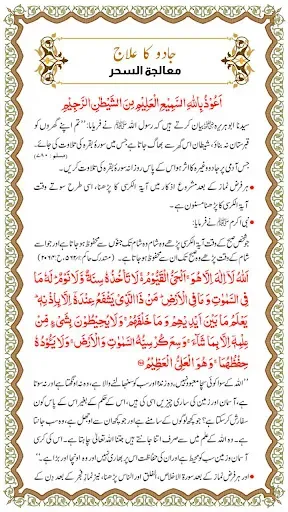 جادو کا علاج
معالجة السحر
اَعُوْذُ بِاللّٰهِ السَّمِیْعِ الْعَلِیْمِ مِنَ الشَّیْطٰنِ الرَّجِیْمِ
سیدنا ابو ہریرہ رضی اللہ عنہ بیان کرتے ہیں کہ رسول اللہ ﷺ نے فرمایا: "تم اپنے گھروں کو
قبرستان نہ بناؤ، شیطان اس گھر سے بھاگ جاتا ہے جس میں سورۃ بقرہ کی تلاوت کی جائے۔
جس آدمی پر جادو وغیرہ کا اثر ہو اس کے پاس روزانہ سورۃ بقرہ کی تلاوت کریں۔ (مسلم: ۷۸۰)
• ہر فرض نماز کے بعد مشروع اذکار میں آیۃ الکرسی کا پڑھنا، اسی طرح سوتے وقت
آیۃ الکرسی کا پڑھنا مسنون ہے۔
• نبی اکرم ﷺ نے فرمایا:
جو شخص صبح کے وقت آیۃ الکرسی پڑھے وہ شام تک جنوں سے محفوظ ہو جاتا ہے اور جو اسے
شام کے وقت پڑھے وہ صبح تک ان سے محفوظ ہو جاتا ہے۔ (مستدرک حاکم:
اَللّٰهُ لَاۤ اِلٰهَ اِلَّا هُوَ ۚ اَلْحَیُّ الْقَیُّوْمُ ۚ لَا تَاْخُذُهٗ سِنَةٌ وَّلَا نَوْمٌ ؕ لَهٗ مَا
فِی السَّمٰوٰتِ وَمَا فِی الْاَرْضِ ؕ مَنْ ذَا الَّذِیْ یَشْفَعُ عِنْدَهٗۤ اِلَّا بِاِذْنِهٖ ؕ
یَعْلَمُ مَا بَیْنَ اَیْدِیْهِمْ وَمَا خَلْفَهُمْ ۚ وَلَا یُحِیْطُوْنَ بِشَیْءٍ مِّنْ
عِلْمِهٖۤ اِلَّا بِمَا شَآءَ ۚ وَسِعَ كُرْسِیُّهُ السَّمٰوٰتِ وَالْاَرْضَ ۚ وَلَا یَـُٔوْدُهٗ
حِفْظُهُمَا ۚ وَهُوَ الْعَلِیُّ الْعَظِیْمُ
"اللہ کے سوا کوئی سچا معبود نہیں، وہ زندہ اور سب کو سنبھالنے والا ہے، وہ نہ اونگھتا ہے اور نہ سوتا
ہے، آسمان اور زمین کی ساری چیزیں اسی کی ہیں، اس کے حکم کے بغیر اس کے پاس کون
سفارش کر سکتا ہے؟ جو کچھ لوگوں کے سامنے ہے اور جو کچھ ان سے اوجھل ہے، وہ سب جانتا
ہے۔ وہ اللہ کے علم میں سے صرف اتنا جانتے ہیں جتنا اللہ تعالیٰ چاہتا ہے۔ اس کی کرسی
آسمان و زمین سب کو محیط ہے اور ان کی حفاظت اس پر بھاری نہیں اور وہ اونچا اور بڑا ہے۔"
• اور ہر فرض نماز کے بعد سورۃ الاخلاص، الفلق اور الناس پڑھنا، نیز نماز فجر کے بعد دن کے